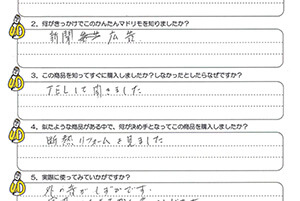 2. 何がきっかけでこのかんたんマドリモを知りましたか?
新聞 広告
3. この商品を知ってすぐに購入しましたか?しなかったとしたらなぜですか?
TELして聞きました
4. 似たような商品がある中、何が決め手となってこの商品を購入しましたか?
断熱リフォームを見ました
5. 実際に使ってみていかがですか?
外の音がしずかです。